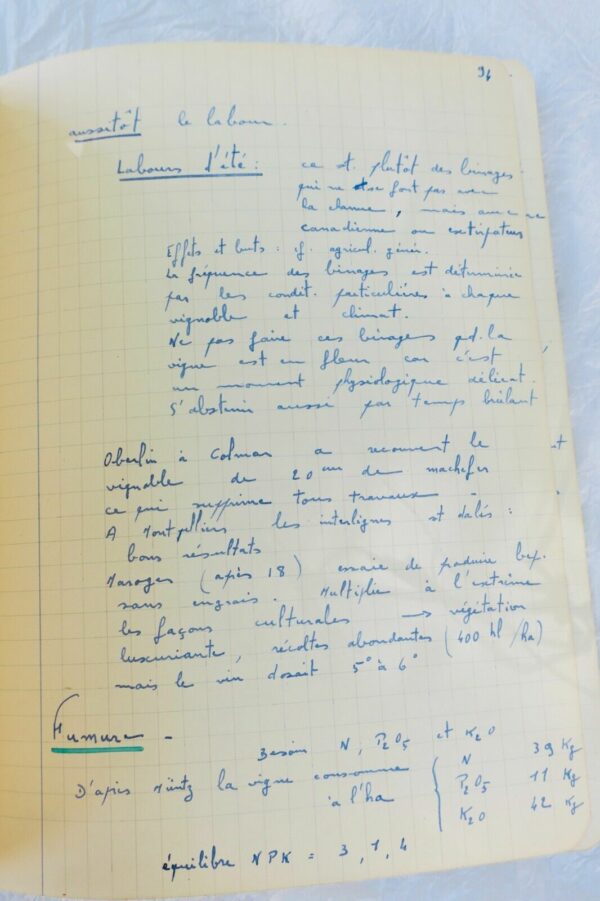 94
aussitôt le labour.
Labours d'été : ce st. plutôt des binages
qui ne se font pas avec
la charrue, mais avec
canadienne ou extirpateurs
Effets et buts : cf. agricul. génér.
La fréquence des binages est déterminée
par les condit. particulières à chaque
vignoble et climat.
Ne pas faire ces binages pd. la
vigne est en fleur car c'est
un moment physiologique délicat.
S'abstenir aussi par temps brûlant
Oberlin à Colmar a recouvert le
vignoble de 20 cm de machefer
ce qui supprime tous travaux
A Montpelliers les interlignes st dalés :
bons résultats
(après 18) essaie de produire bcp.
sans engrais. Multiplie à l'extrême
les façons culturales → végétation
luxuriante, récoltes abondantes (400 hl/ha)
mais le vin dosait 5° à 6°
Fumure -
Besoin N, P2O5 et K2O
D'après Müntz la vigne consomme
à l'ha
N 39 Kg
P2O5 11 Kg
K2O 42 Kg
équilibre NPK = 3, 1, 4